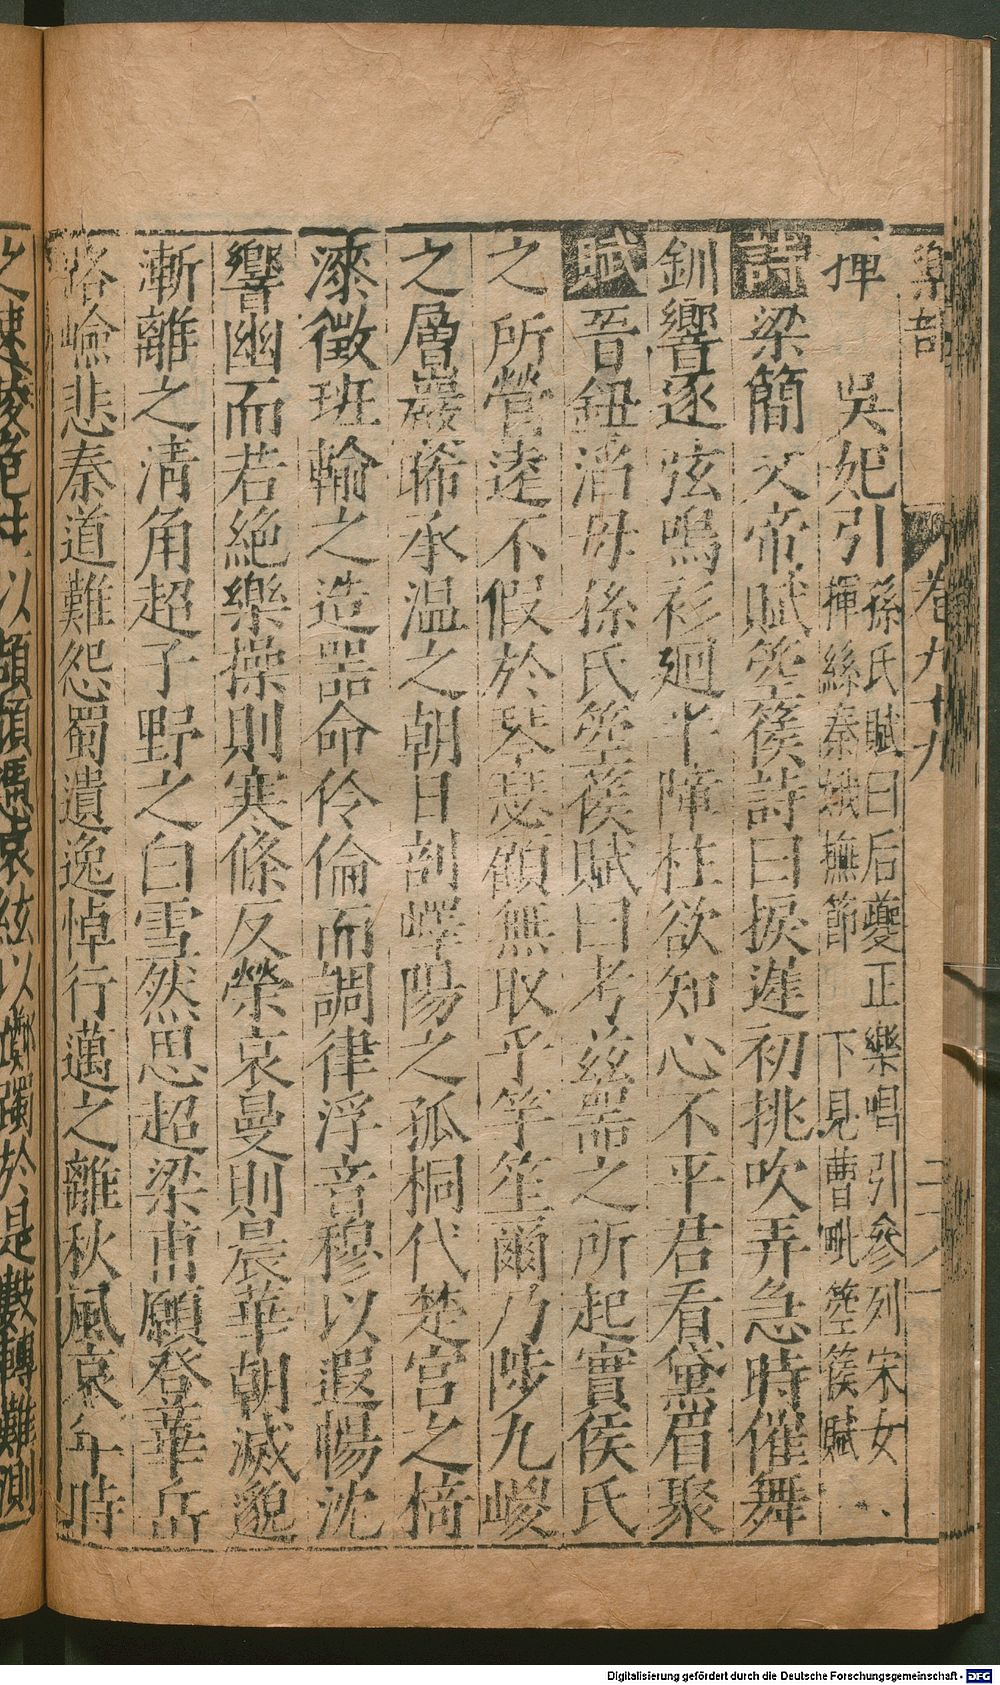 樂部
卷九十九
揮
吳妃引
孫氏賦曰后夔正樂唱引參列宋女
揮絲秦娥撫節
下見曹毗箜篌賦
詩梁簡文帝賦箜篌詩曰捩遲初挑吹弄急時催舞
釧響逐弦鳴衫廻半障柱欲知心不平君看黛眉聚
賦晉鈕滔母孫氏箜篌賦曰考茲器之所起實侯氏
之所營遠不假於琴瑟顧無取乎竽笙爾乃陟九嵕
之層巖晞承温之朝日剖嶧陽之孤桐代楚宮之椅
漆徵班輸之造器命伶倫而調律浮音穆以遐暢沈
響幽而若絶樂操則寒條反榮哀曼則晨華朝滅邈
漸離之清角超子野之白雪然思超梁甫願登華岳
路嶮悲秦道難怨蜀遺逸悼行邁之離秋風哀年時
之速陵危柱以頡頏憑哀絃以躑躅於是數轉難測
Digitalisierung gefördert durch die Deutsche Forschungsgemeinschaft - DFG